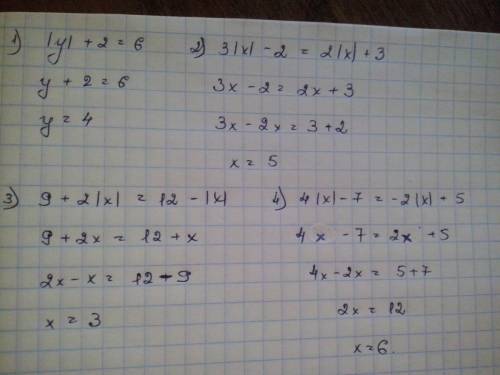 1) |y| + 2 = 6
y + 2 = 6
y = 4
2) 3|x| - 2 = 2|x| + 3
3x - 2 = 2x + 3
3x - 2x = 3 + 2
x = 5
3) 9 + 2|x| = 12 - |x|
9 + 2x = 12 + x
2x - x = 12 - 9
x = 3
4) 4|x| - 7 = -2|x| + 5
4x - 7 = 2x + 5
4x - 2x = 5 + 7
2x = 12
x = 6.